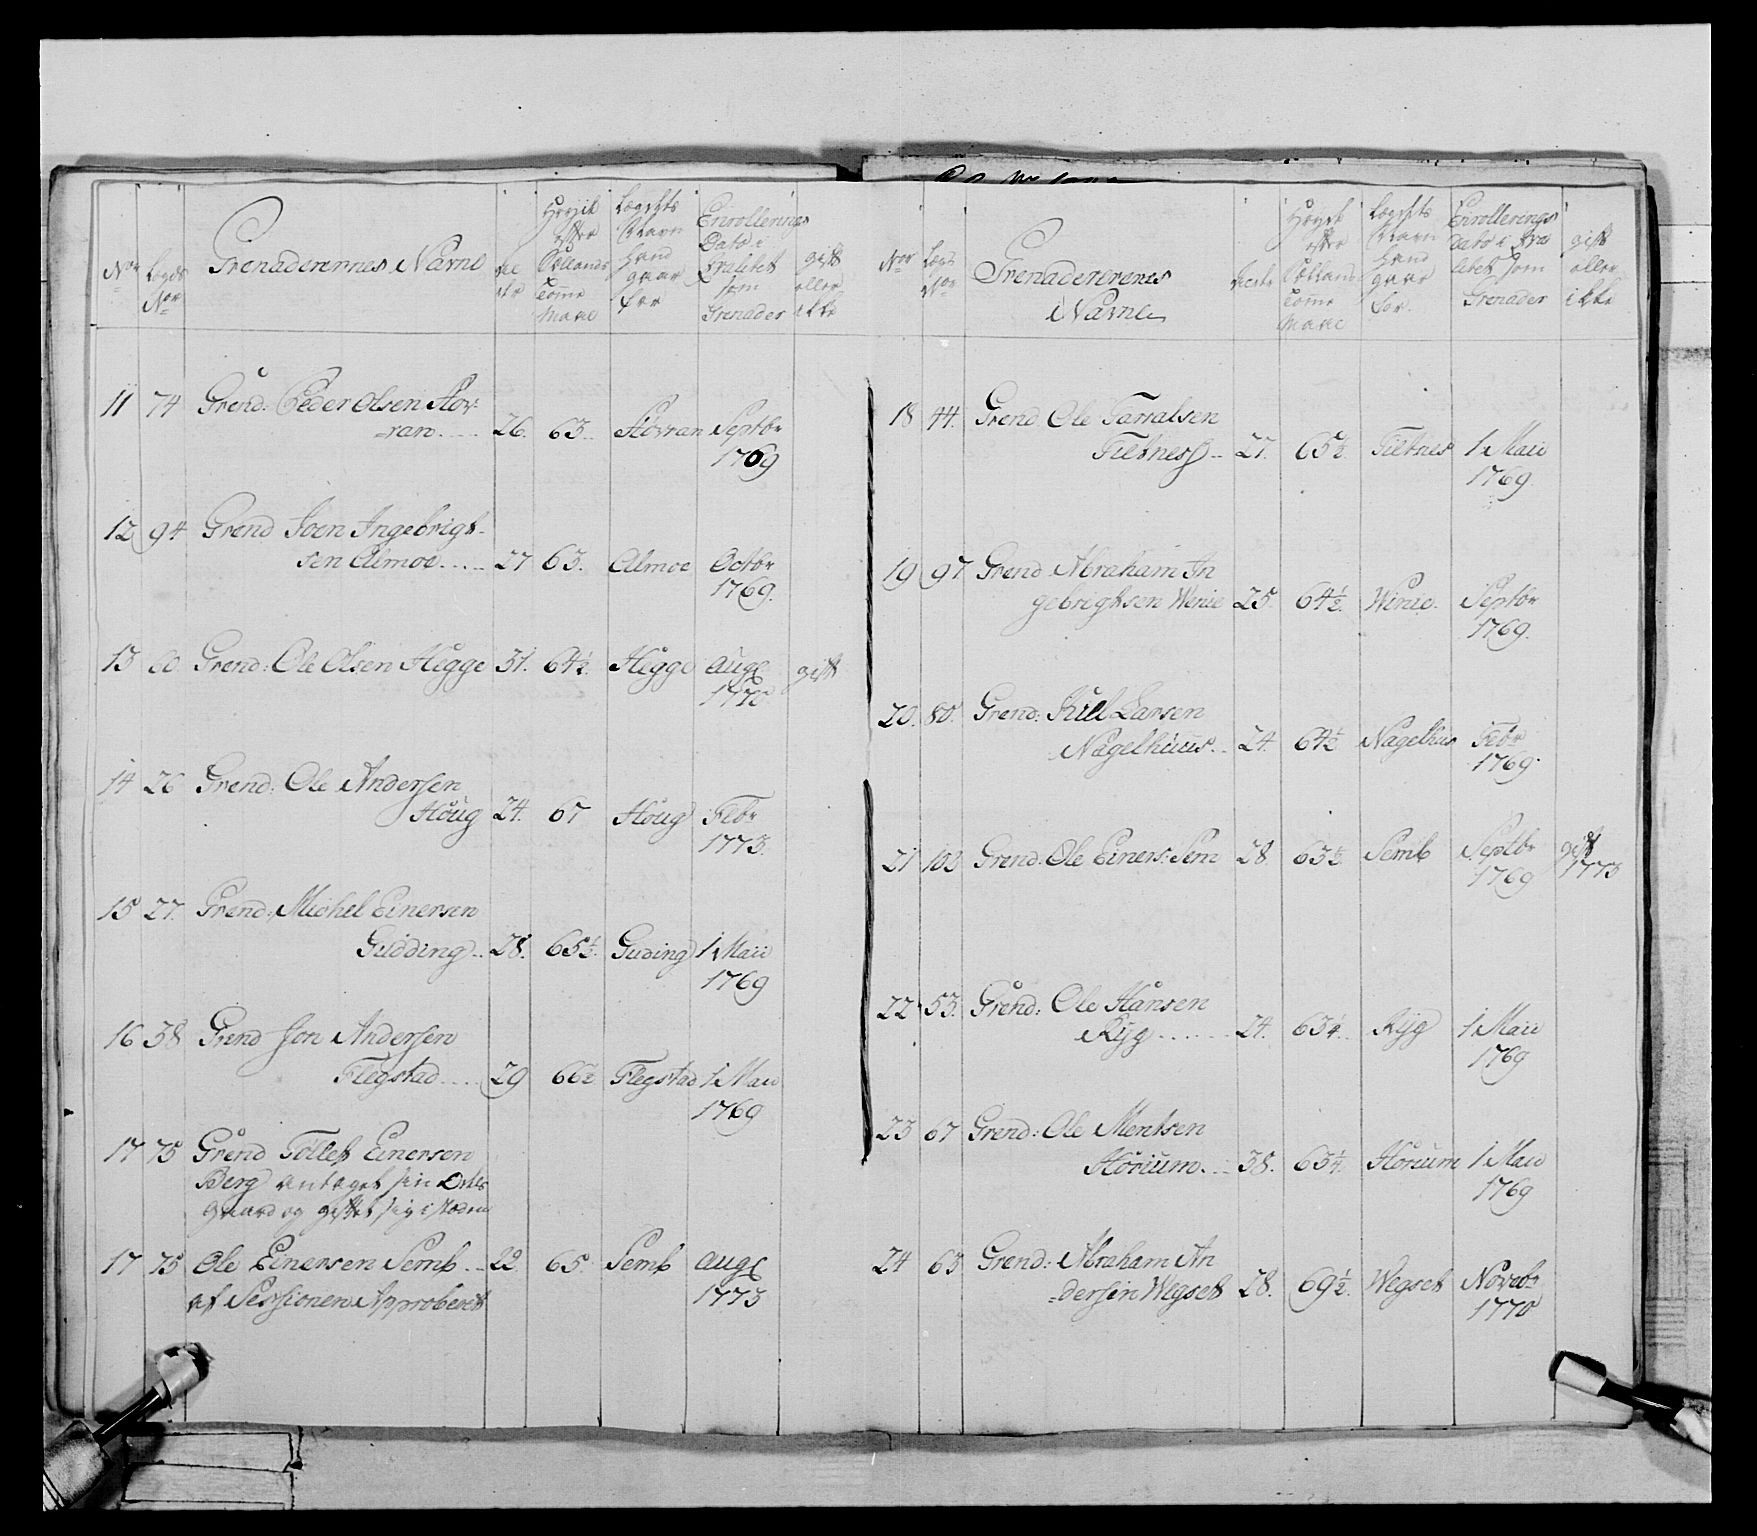 No
Legds No
Grenaderernes Navne
Høyde efter Sællands Tomme Maal
Lægdets Navn hand gaar for
Enrollerings Dato i Qvalitet som Grenader
gift eller ikke
11 74 Grend: Peder Olsen Hov=
=ran.... 26. 63.. Hovran Septbr
1769
12 94 Grend Joen Ingebrigt-
sen Almoe..... 27 63. Almoe Octbr
1769.
13 60 Grend: Ole Olsen Hegge 31. 64½. Hegge Aug
1770 gift
14 26 Grend: Ole Andersen
Houg 24. 67 Houg Febr
1773.
15 27. Grend: Michel Einersen
Gudding.. 28. 65½. Guding 1 Maii
1769
16 38 Grend Jon Andersen
Flegstad.... 29 66½ Flegstad 1 Maii
1769
17 75 Grend Tollef Einersen
Berg antaget sin
Gaard og giftet sig i
17 75 Ole Einersen Semb.. 22 65. Semb Aug
af Sessionen Approberet 1773
No
Legs No
Grenaderernes
Navne
Høyde efter Sællands Tomme Maal
Lægdets Navn hand gaar for.
Enrollerings Dato i Qvalitet som Grenader
gift eller ikke
18 44. Grend Ole Tarralsen
Tiltness.. 27. 65½. Tiltnes 1 Maii
1769.
19 97 Grend Abraham In
gebrigtsen Werie 25. 64½. Werie. Septbr
1769.
20. 80. Grend: Kiel Larsen
Nagelhuus.. 24. 64½ Nagelhus Febr
1769.
21 102 Grend: Ole Einers: Sem 28. 63½ Semb Septbr gift
1769 1773
22 53. Grend: Ole Hansen
Ryg....... 24. 63¼.. Ryg 1 Maii
1769
23 67 Grend: Ole Mentsen
Horium... 38. 63¼. Horium 1 Maii
1769
24 63 Grend: Abraham An
=dersen Wegset 28. 69½. Wegset Novebr
1770